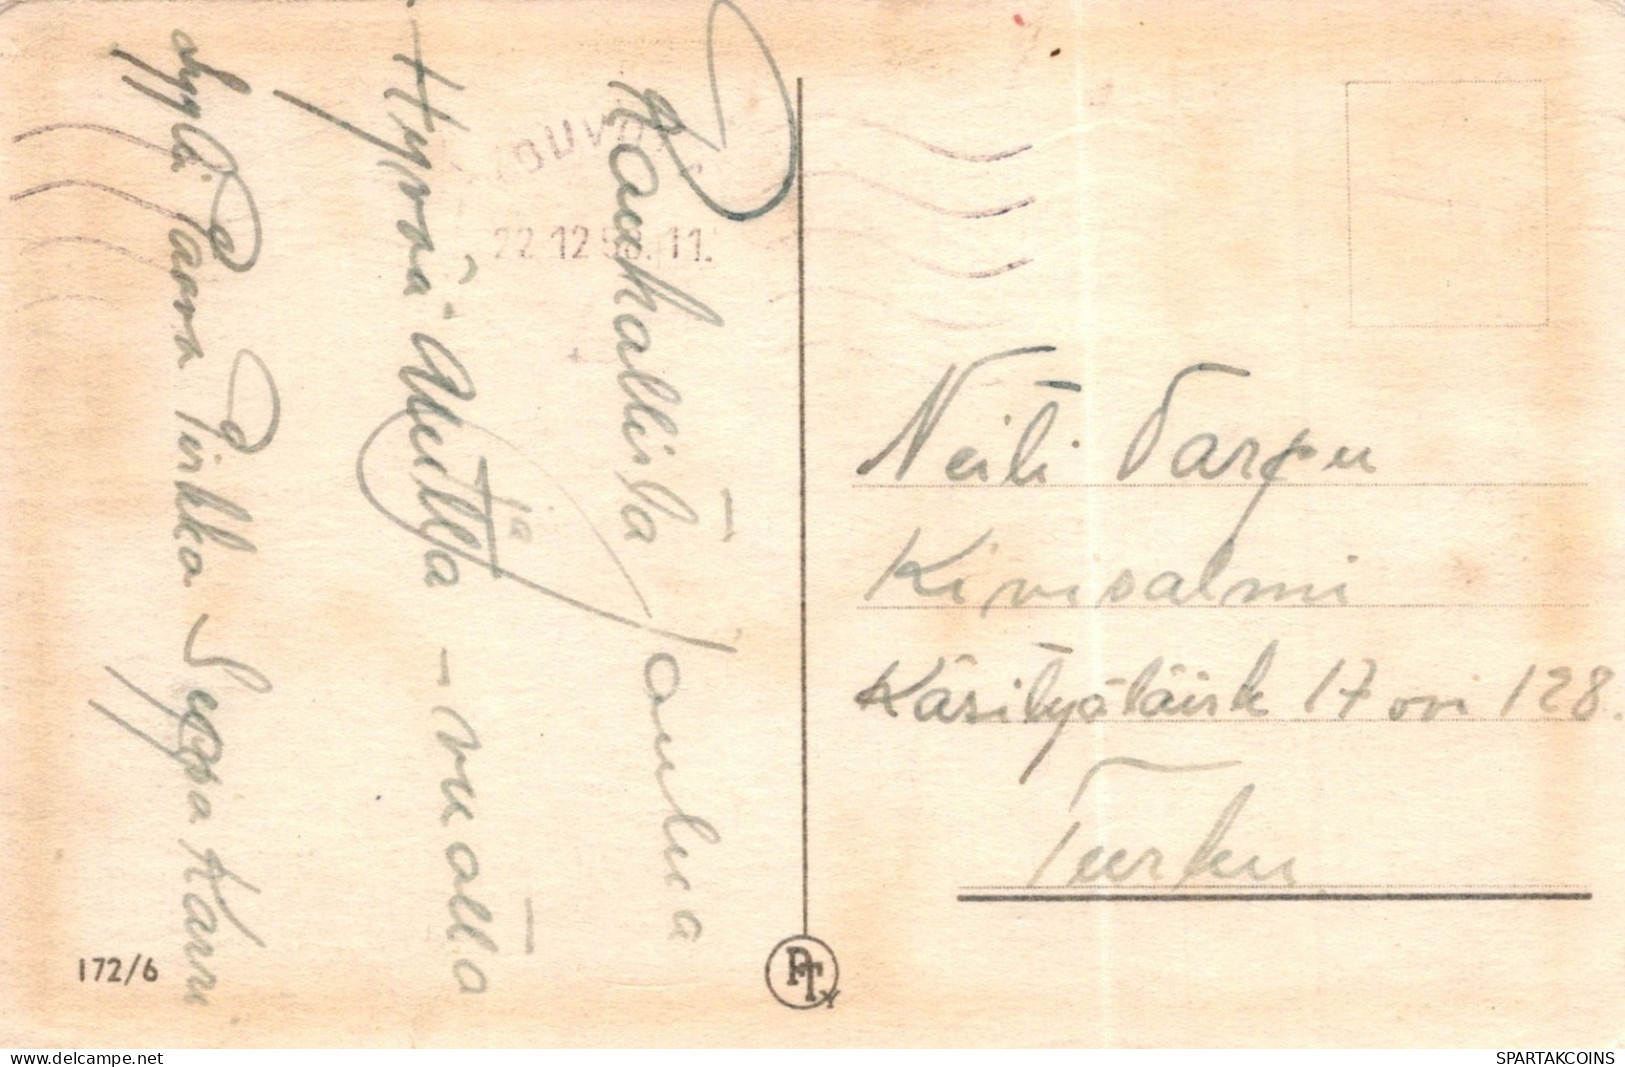 Rauhallista Joulua
ja
Hyvää Uutta -vuotta
Lyyli Paavo Pirkko Seppo Karri
22.12.5 .11.
Neiti Varpu
Kivisalmi
Käsityöläisk 17 ovi 128.
Turku
172/6
PTY
www.delcampe.net
SPARTAKCOINS